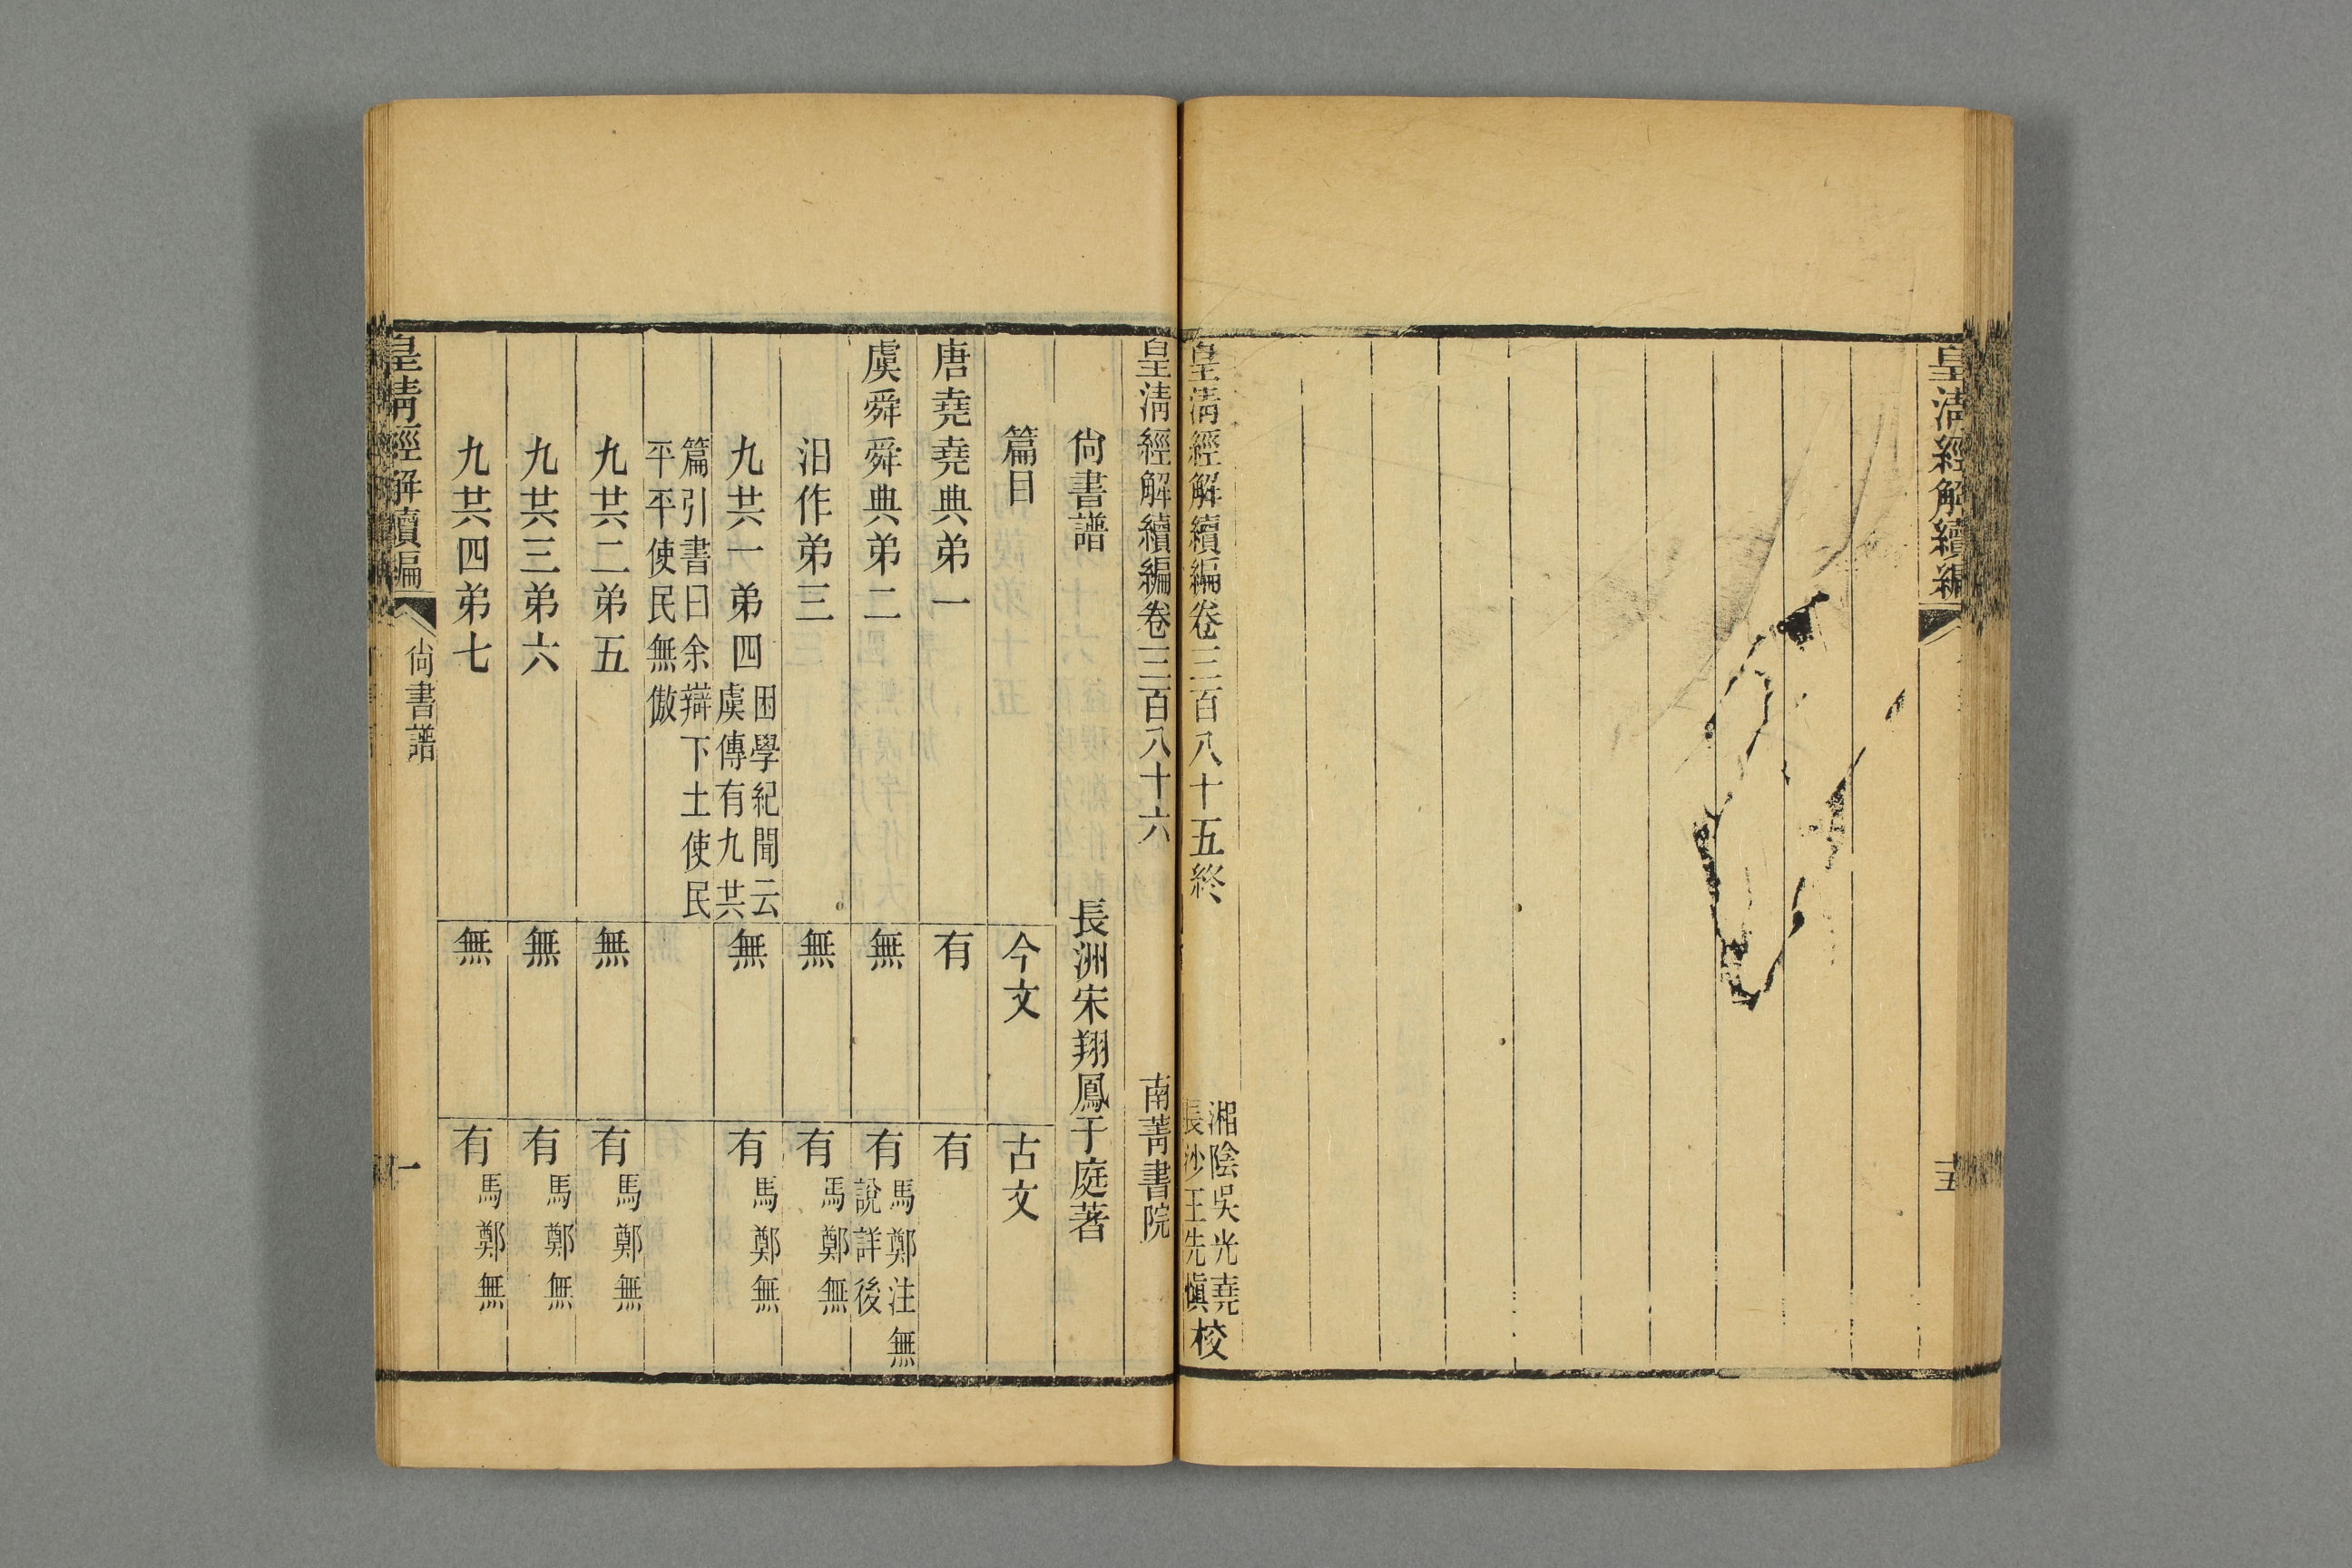 皇清經解續編
十五
皇清經解續編卷三百八十五終
湘陰吳光堯
長沙王先愼校
皇清經解續編卷三百八十六
南菁書院
尙書譜
長洲宋翔鳳于庭著
篇目
今文
古文
唐堯堯典弟一
有
有
虞舜舜典弟二
無
有
馬鄭注無
說詳後
汨作弟三
無
有
馬鄭無
九共一弟四
困學紀聞云
虞傳有九共
無
有
馬鄭無
篇引書曰余辯下土使民
平平使民無傲
九共二弟五
無
有
馬鄭無
九共三弟六
無
有
馬鄭無
九共四弟七
無
有
馬鄭無
皇清經解續編
尙書譜
一